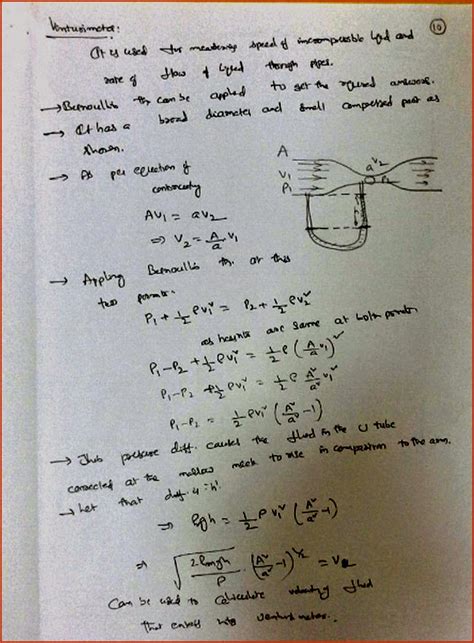 Venturimeter: 10
It is used for measuring speed of incompressible liquid and
rate of flow of liquid through pipes.
→ Bernoulli's th. can be applied to get the required answers.
→ It has a broad diameter and small compressed part as
shown.
→ As per equation of
continuity
AV₁ = aV₂
⇒ V₂ = A/a V₁
A
V₁
P₁
a V₂
P₂
→ Applying Bernoulli's th. at this
two points.
P₁ + 1/2 ρV₁² = P₂ + 1/2 ρV₂²
as heights are same at both points
P₁-P₂ + 1/2 ρV₁² = 1/2 ρ (A/a V₁)²
P₁-P₂ + 1/2 ρV₁² = 1/2 ρ A²/a² V₁²
P₁-P₂ = 1/2 ρV₁² (A²/a² -1)
→ This pressure diff. causes the fluid in the U tube
connected at the narrow neck to rise in comparison to the arm.
→ Let that diff. is 'h'.
⇒ ρgh = 1/2 ρ V₁² (A²/a² -1)
Can be used to calculate velocity fluid
that enters into venturi meter.